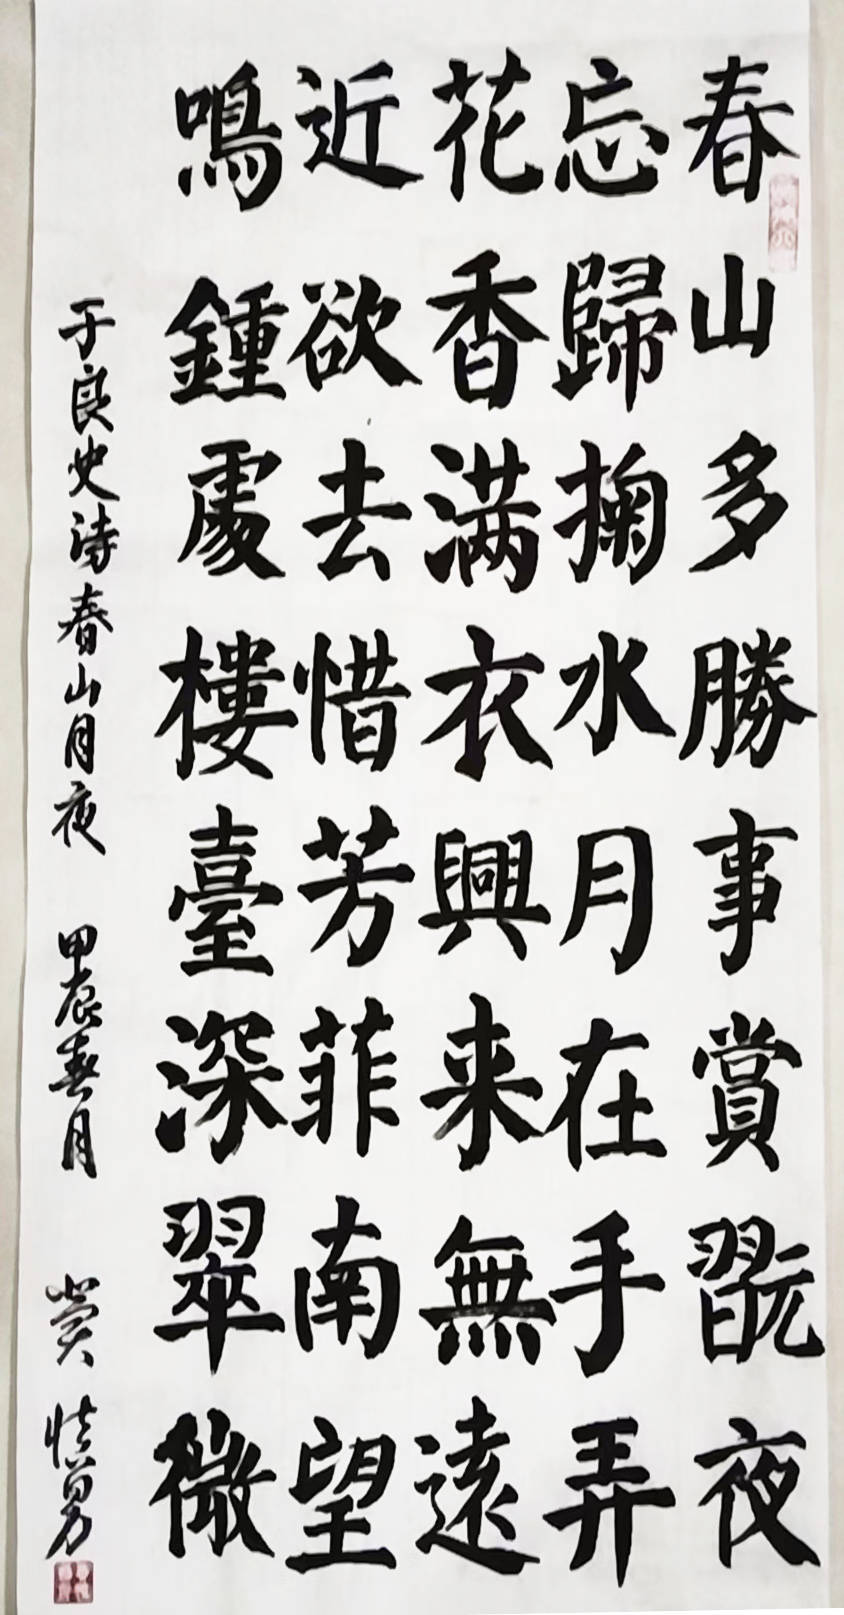 春山多勝事賞翫夜
忘歸掬水月在手弄
花香满衣興来無遠
近欲去惜芳菲南望
鳴鍾處樓臺深翠微
于良史诗春山月夜 甲辰春月 慎勇